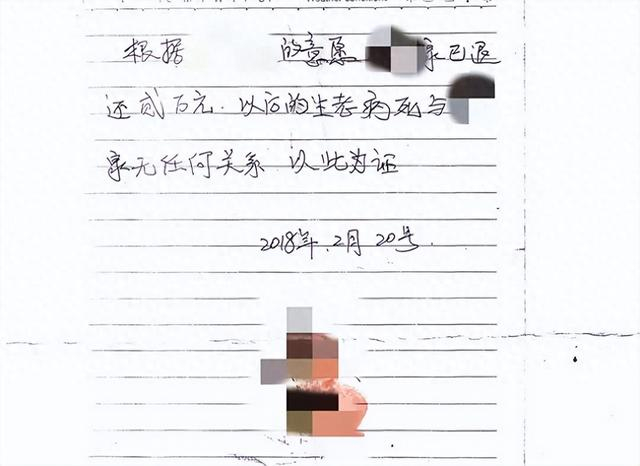 根据 的意愿 家已退
还贰万元.以后的生老病死与
家无任何关系 以此为证
2018年.2月20号.